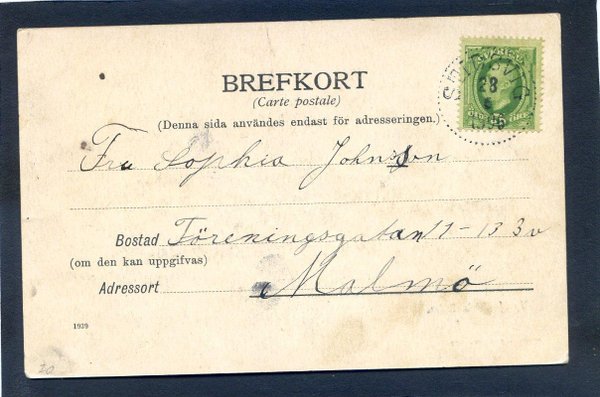 BREFKORT
(Carte postale)
(Denna sida användes endast för adresseringen.)
SVERIGE
28
Fru Sophia Johnson
Bostad Föreningsgatan
(om den kan uppgifvas)
Adressort Malmö
1939
20